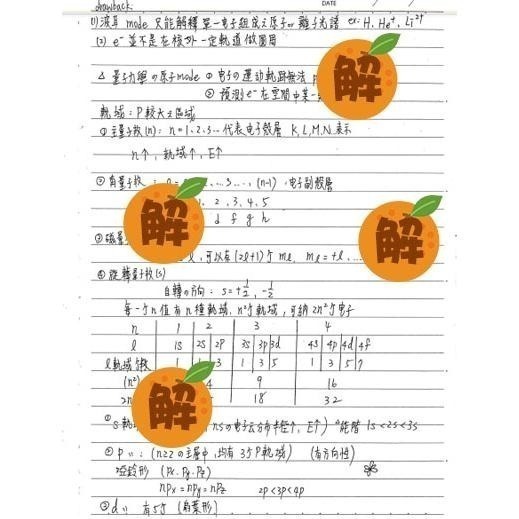 drawback
DATE
(1) 波耳 mode 只能解釋單一電子組成之原子or離子光譜 ex: H, He⁺, Li²⁺
(2) e⁻ 並不是在核外一定軌道做圓周
△ 量子力學の原子mode ① 電子の運動軌跡無法 p
② 預測 e⁻ 在空間中某一
解
軌域: P較大之區域
①主量子数(n): n=1、2、3… 代表电子殼層 K,L,M,N 表示
n↑, 軌域↑, E↑
②角量子数: l=
2, …3…, (n-1), 电子副殼層
2、3、4、5
d f g h
解
解
③磁量
l, 可以有(2l+1)个 ml, ml = +l, …
④旋轉量子数(s)
自轉の方向: s=+½, -½
每一个n值有n種軌域, n²个軌域, 可納2n²个电子
n 1 2 3 4
l 1s 2s 2p 3s 3p 3d 4s 4p 4d 4f
l軌域个数 3 1 3 5 1 3 5 7
(n²) 4 9 16
2n 18 32
解
①s軌域 (ns の电子云分布半徑个, E↑) 能階 1s<2s<3s
②p〃: (n≥2 の主層中, 均有3个P軌域) (有方向性)
啞鈴形 (Px、Py、Pz)
npx=npy=npz 2p<3p<4p
③d〃 有5个